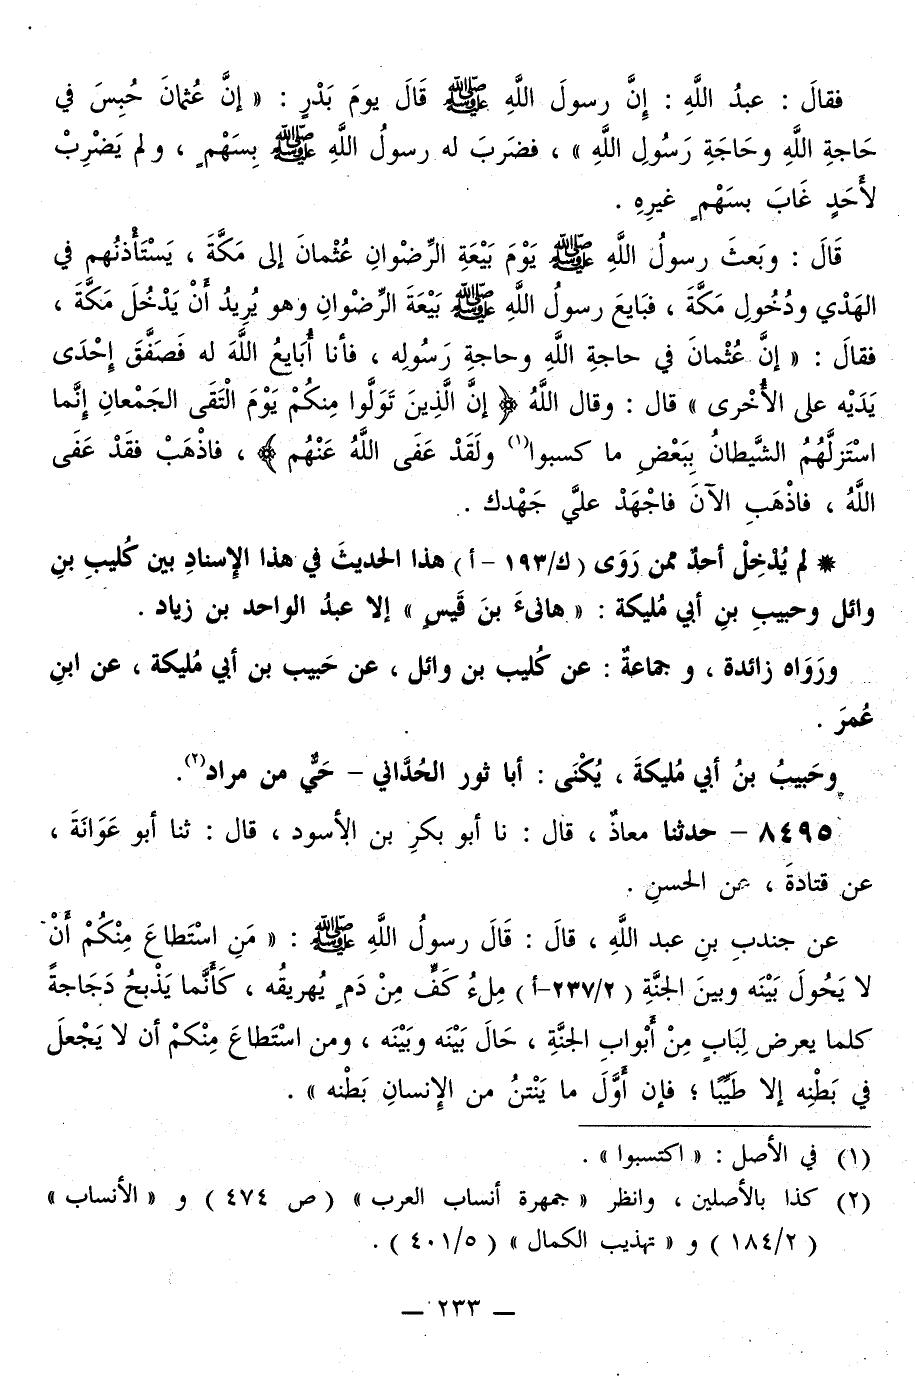 فقالَ : عبدُ اللَّهِ : إِنَّ رسولَ اللَّهِ ﷺ قَالَ يومَ بَدْرٍ : « إنَّ عُثمانَ حُبِسَ في
حَاجةِ اللَّهِ وحَاجَةِ رَسُولِ اللَّهِ » ، فضَربَ له رسولُ اللَّهِ ﷺ بِسَهْمٍ ، ولم يَضْرِبْ
لأَحَدٍ غَابَ بسَهْمٍ غيرِهِ .
قَالَ : وبَعثَ رسولُ اللَّهِ ﷺ يَوْمَ بَيْعَةِ الرِّضْوانِ عُثْمانَ إلى مَكَّةَ ، يَسْتَأْذنُهم في
الهَدْي ودُخُولِ مَكَّةَ ، فبَايعَ رسولُ اللَّهِ ﷺ بَيْعَةَ الرِّضْوانِ وهو يُرِيدُ أَنْ يَدْخُلَ مَكَّةَ ،
فقالَ : « إنَّ عُثْمانَ في حاجةِ اللَّهِ وحاجةِ رَسُولِه ، فأنا أُبَايعُ اللَّهَ له فَصَفَّقَ إِحْدَى
يَدَيْه على الأُخْرى » قال : وقال اللَّهُ ﴿ إنَّ الَّذِينَ تَوَلَّوا مِنكُمْ يَوْمَ الْتَقَى الجَمْعانِ إنَّما
اسْتَزلَّهُمُ الشَّيطانُ بِبَعْضِ ما كسبوا(١) ولَقَدْ عَفَى اللَّهُ عَنْهُم ﴾ ، فاذْهَبْ فقَدْ عَفَى
اللَّهُ ، فاذْهَبِ الآنَ فاجْهَدْ عليَّ جَهْدك .
* لم يُدْخِلْ أحدٌ ممن رَوَى ( ك/١٩٣ - أ ) هذا الحديثَ في هذا الإِسنادِ بين كُليبِ بنِ
وائل وحبيبِ بنِ أبي مُليكة : « هانىءَ بنَ قَيسٍ » إلا عبدُ الواحد بن زياد .
ورَوَاه زائدة ، و جماعةٌ : عن كُليب بن وائل ، عن حَبيب بن أبي مُليكة ، عن ابنِ
عُمرَ .
وحَبيبُ بنُ أبي مُليكةَ ، يُكْنَى : أبا ثور الحُدَّاني - حَيٌّ من مراد(٢) .
٨٤٩٥ - حدثنا معاذٌ ، قال : نا أبو بكرِ بن الأسود ، قال : ثنا أبو عَوَانَةَ ،
عن قتادةَ ، عن الحسنِ .
عن جندبِ بنِ عبد اللَّهِ ، قالَ : قَالَ رسولُ اللَّهِ ﷺ : « مَنِ اسْتَطاعَ مِنْكُمْ أَنْ
لا يَحُولَ بَيْنَه وبينَ الجَنَّةِ ( ٢٣٧/٢-أ ) مِلءُ كَفٍّ مِنْ دَمٍ يُهريقُه ، كَأَنَّما يَذْبحُ دَجَاجةً
كلما يعرض لِبَابٍ مِنْ أَبْوابِ الجنَّةِ ، حَالَ بَيْنَه وبيْنَه ، ومن اسْتَطاعَ مِنْكمْ أن لا يَجْعلَ
في بَطْنِه إلا طَيِّبًا ؛ فإن أَوَّلَ ما يَنْتنُ من الإِنسانِ بَطْنه » .
(١) في الأصل : « اكتسبوا » .
(٢) كذا بالأصلين ، وانظر « جمهرة أنساب العرب » ( ص ٤٧٤ ) و « الأنساب »
( ١٨٤/٢ ) و « تهذيب الكمال » ( ٤٠١/٥ ) .
— ٢٣٣ —